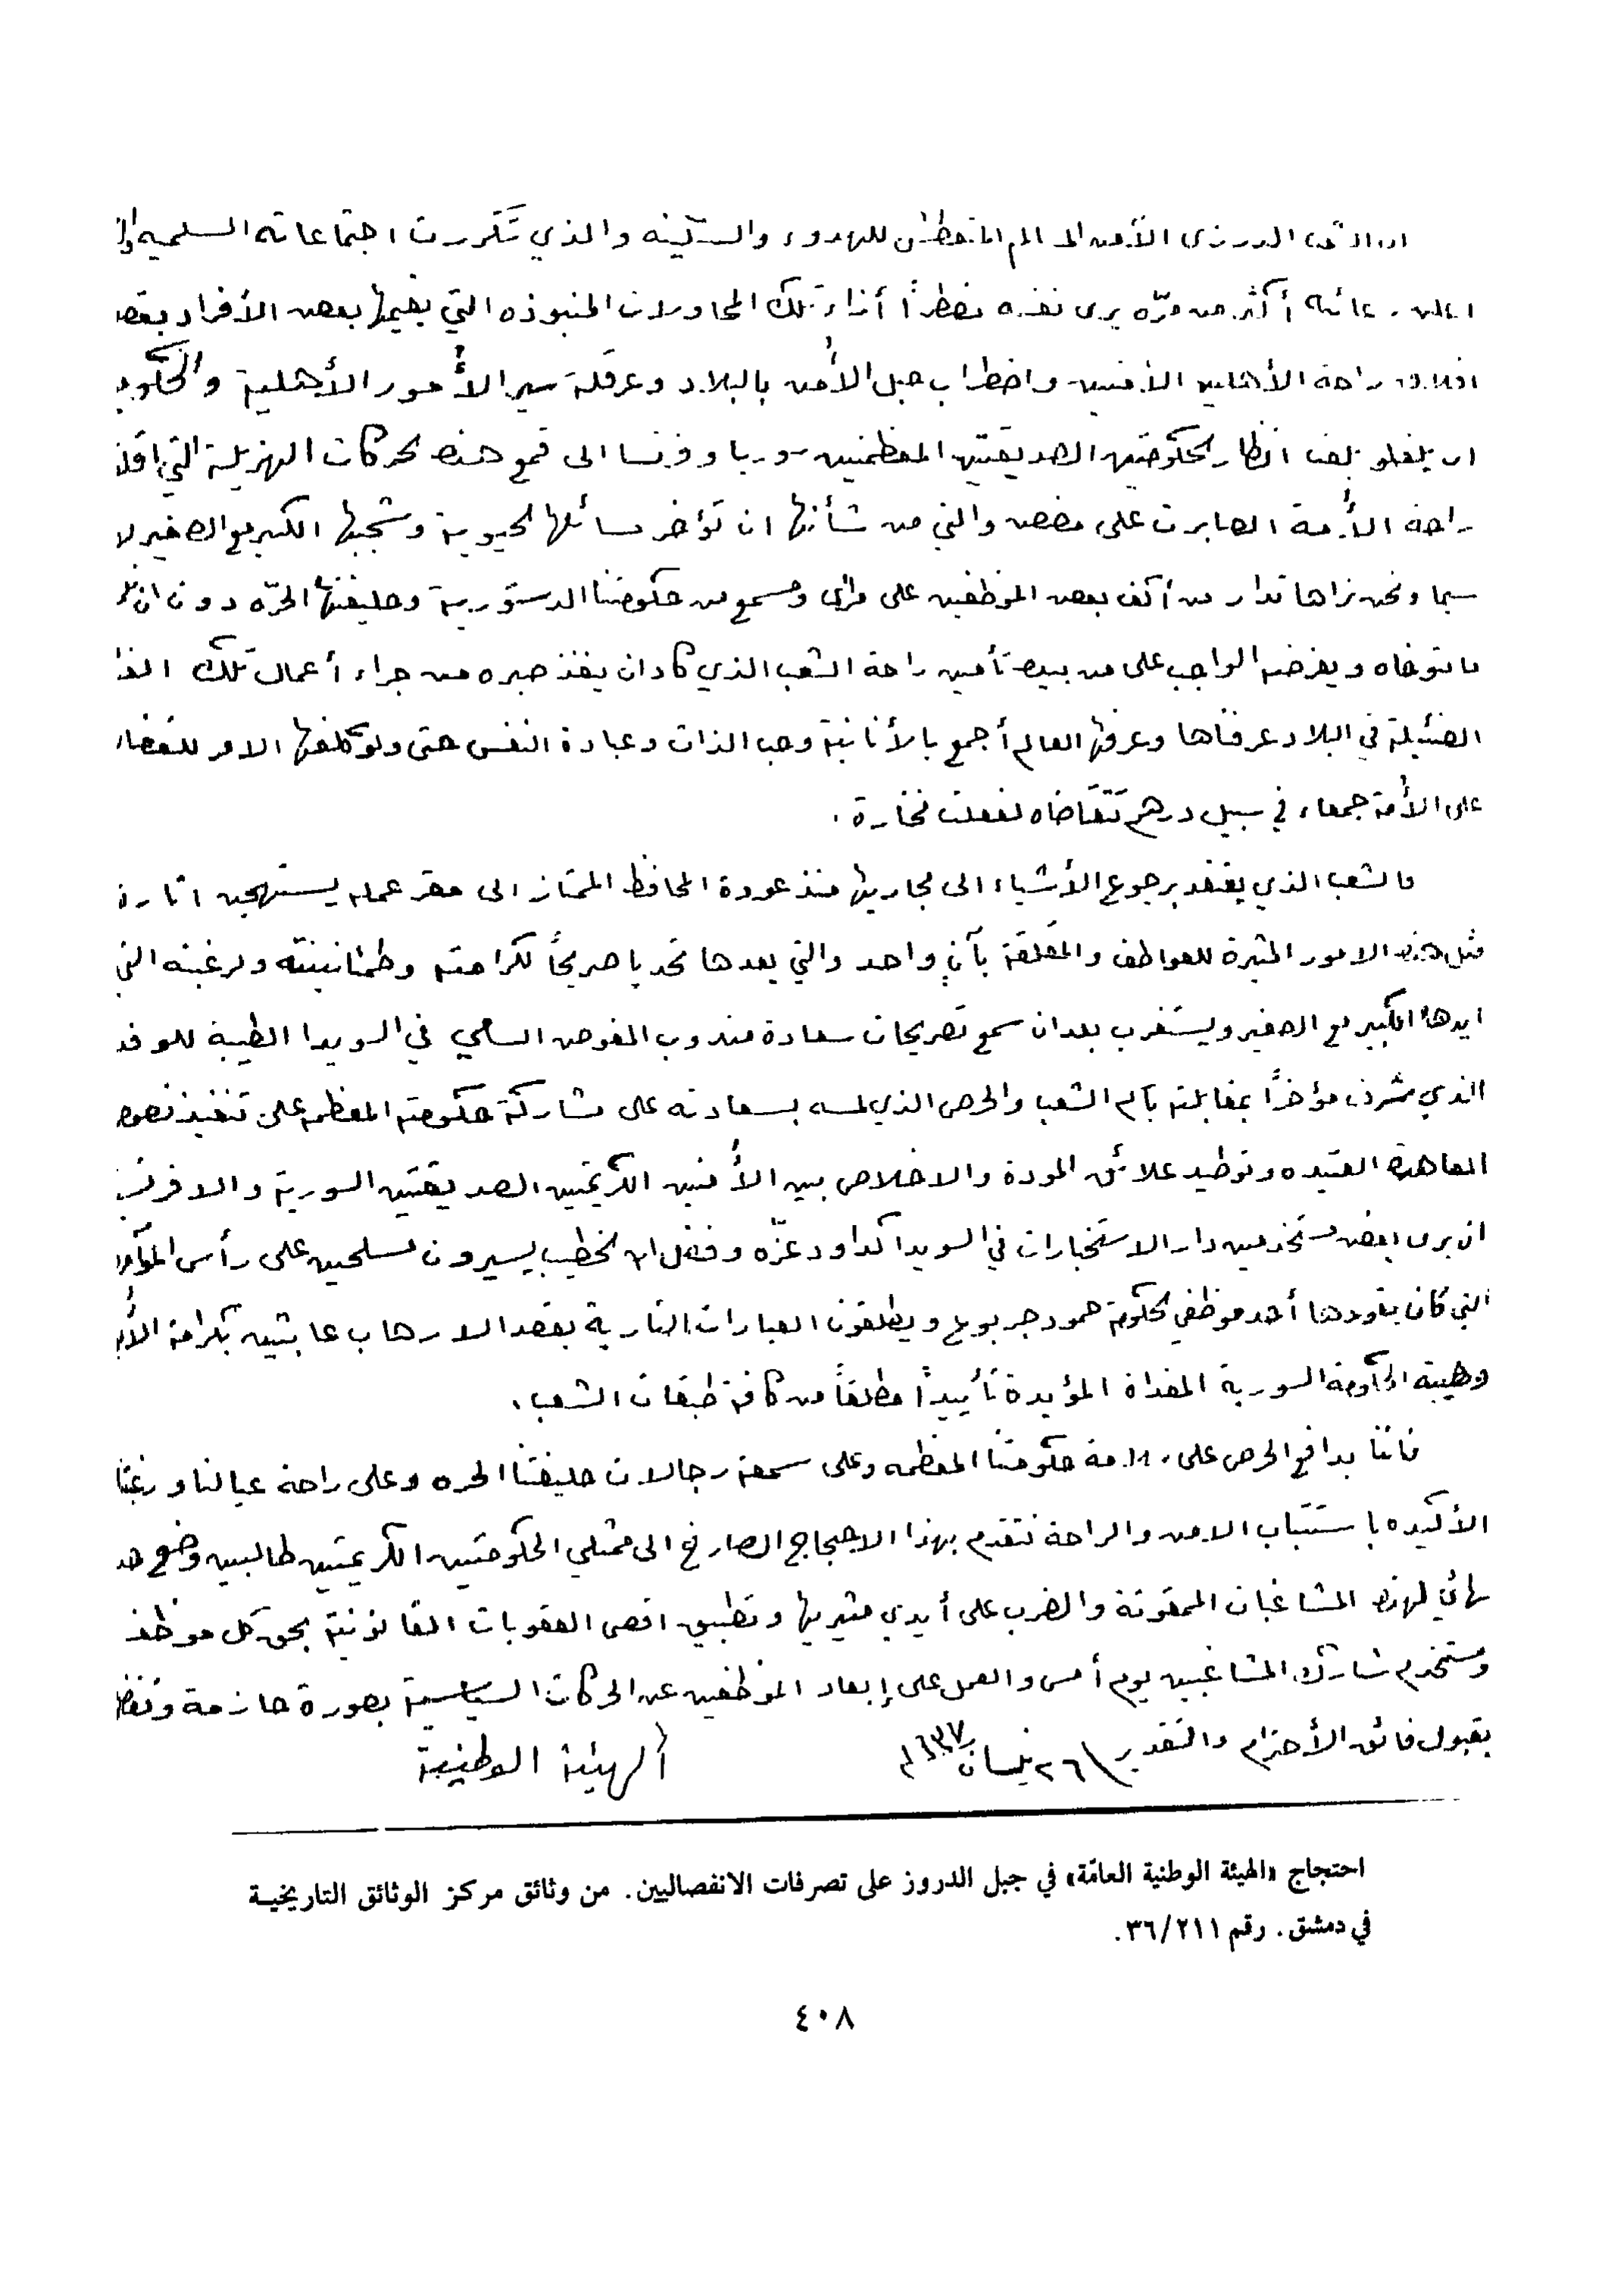 الدرزي الأمن للهدوء والسكينه والذي تكررت اجتماعاته السلميه
أكثر من مرّه يرى نفسه مضطراً أزاء تلك المحاولات المنبوذه التي يقيمها بعض الأفراد بقصد
راحة الأهلين الأمنين واضطراب حبل الأمن بالبلاد وعرقلة سير الأمور الأهلية
ان يلفت أنظار الحكومتين الصديقتين المعظمتين سوريا وفرنسا الى قمع هذه الحركات الهزيلة التي
راحة الأمة الصابرت على مضض والتي من شأنها ان تؤخر مسائلها الحيوية ويشجبها الكبير مع الصغير لا
سيما ونحن نراها تدار من أكف بعض الموظفين على مرأى ومسمع من حكومتنا الدستورية وحليفتها الحرّه دون ان
ما نتوخاه ويفرضه الواجب على من بيده تأمين راحة الشعب الذي كاد ان ينفذ صبره من جراء أعمال تلك
الضئيلة في البلاد عرفناها وعرفها العالم أجمع بالأنانية وحب الذات وعبادة النفس حتى ولو كلفها الامر للقضاء
على الأمة جمعاء في سبيل درهم تتقاضاه لفعلت مختارة .
فالشعب الذي يعتقد برجوع الأشياء الى مجاريها منذ عودة المحافظ الممتاز الى مقر عمله يستهجن اثارة
مثل هذه الامور المثيرة للعواطف والمقلقة بآنٍ واحد والتي يعدها تحديا صريحاً لكرامته وطمئانينته ولرغبته التي
ايدها الكبير مع الصغير ويستغرب بعد ان سمع تصريحات سعادة مندوب المفوض السامي في السويدا الطيبة للوفد
الذي تشرف مؤخراً بمقابلته بآسم الشعب والحرص الذي لمسه بسعادته على مشاركة حكومته المعظمه على تنفيذ نصوص
المعاهدة العتيده وتوطيد علائق المودة والاخلاص بين الأمتين الكريمتين الصديقتين السورية والافرنسية
ان يرى بعض مستخدمين دار الاستخبارات في السويدا كداود عزّه وفضل الله الخطيب يسيرون مسلحين على رأس
التي كان يقودها أحد موظفي الحكومة حمود جربوع ويطلقون العبارات النارية بقصد الارهاب عابثين بكرامة
وهيبة الحكومة السورية المفداة المؤيدة تأييداً مطلقاً من كافة طبقات الشعب .
فاننا بدافع الحرص على كرامة حكومتنا المعظمه وعلى سمعة رجالات حليفتنا الحره وعلى راحة عيالنا ورغبتنا
الأكيده باستتباب الامن والراحة نتقدم بهذا الاحتجاج الصارخ الى ممثلي الحكومتين الكريمتين طالبين وضع حد
نهائي لهذه المشاغبات الممقوتة والضرب على أيدي مثيريها وتطبيق اقصى العقوبات القانونية بحق كل موظف
ومستخدم شارك المشاغبين يوم أمس والعمل على إبعاد الموظفين عن الحركات السياسية بصورة حازمة وتفضلوا
بقبول فائق الأحترام والتقدير / ٢٦ نيسان ١٩٣٧ م
الهيئة الوطنية
احتجاج «الهيئة الوطنية العامّة» في جبل الدروز على تصرفات الانفصاليين. من وثائق مركز الوثائق التاريخية
في دمشق. رقم ٣٦/٢١١.
٤٠٨